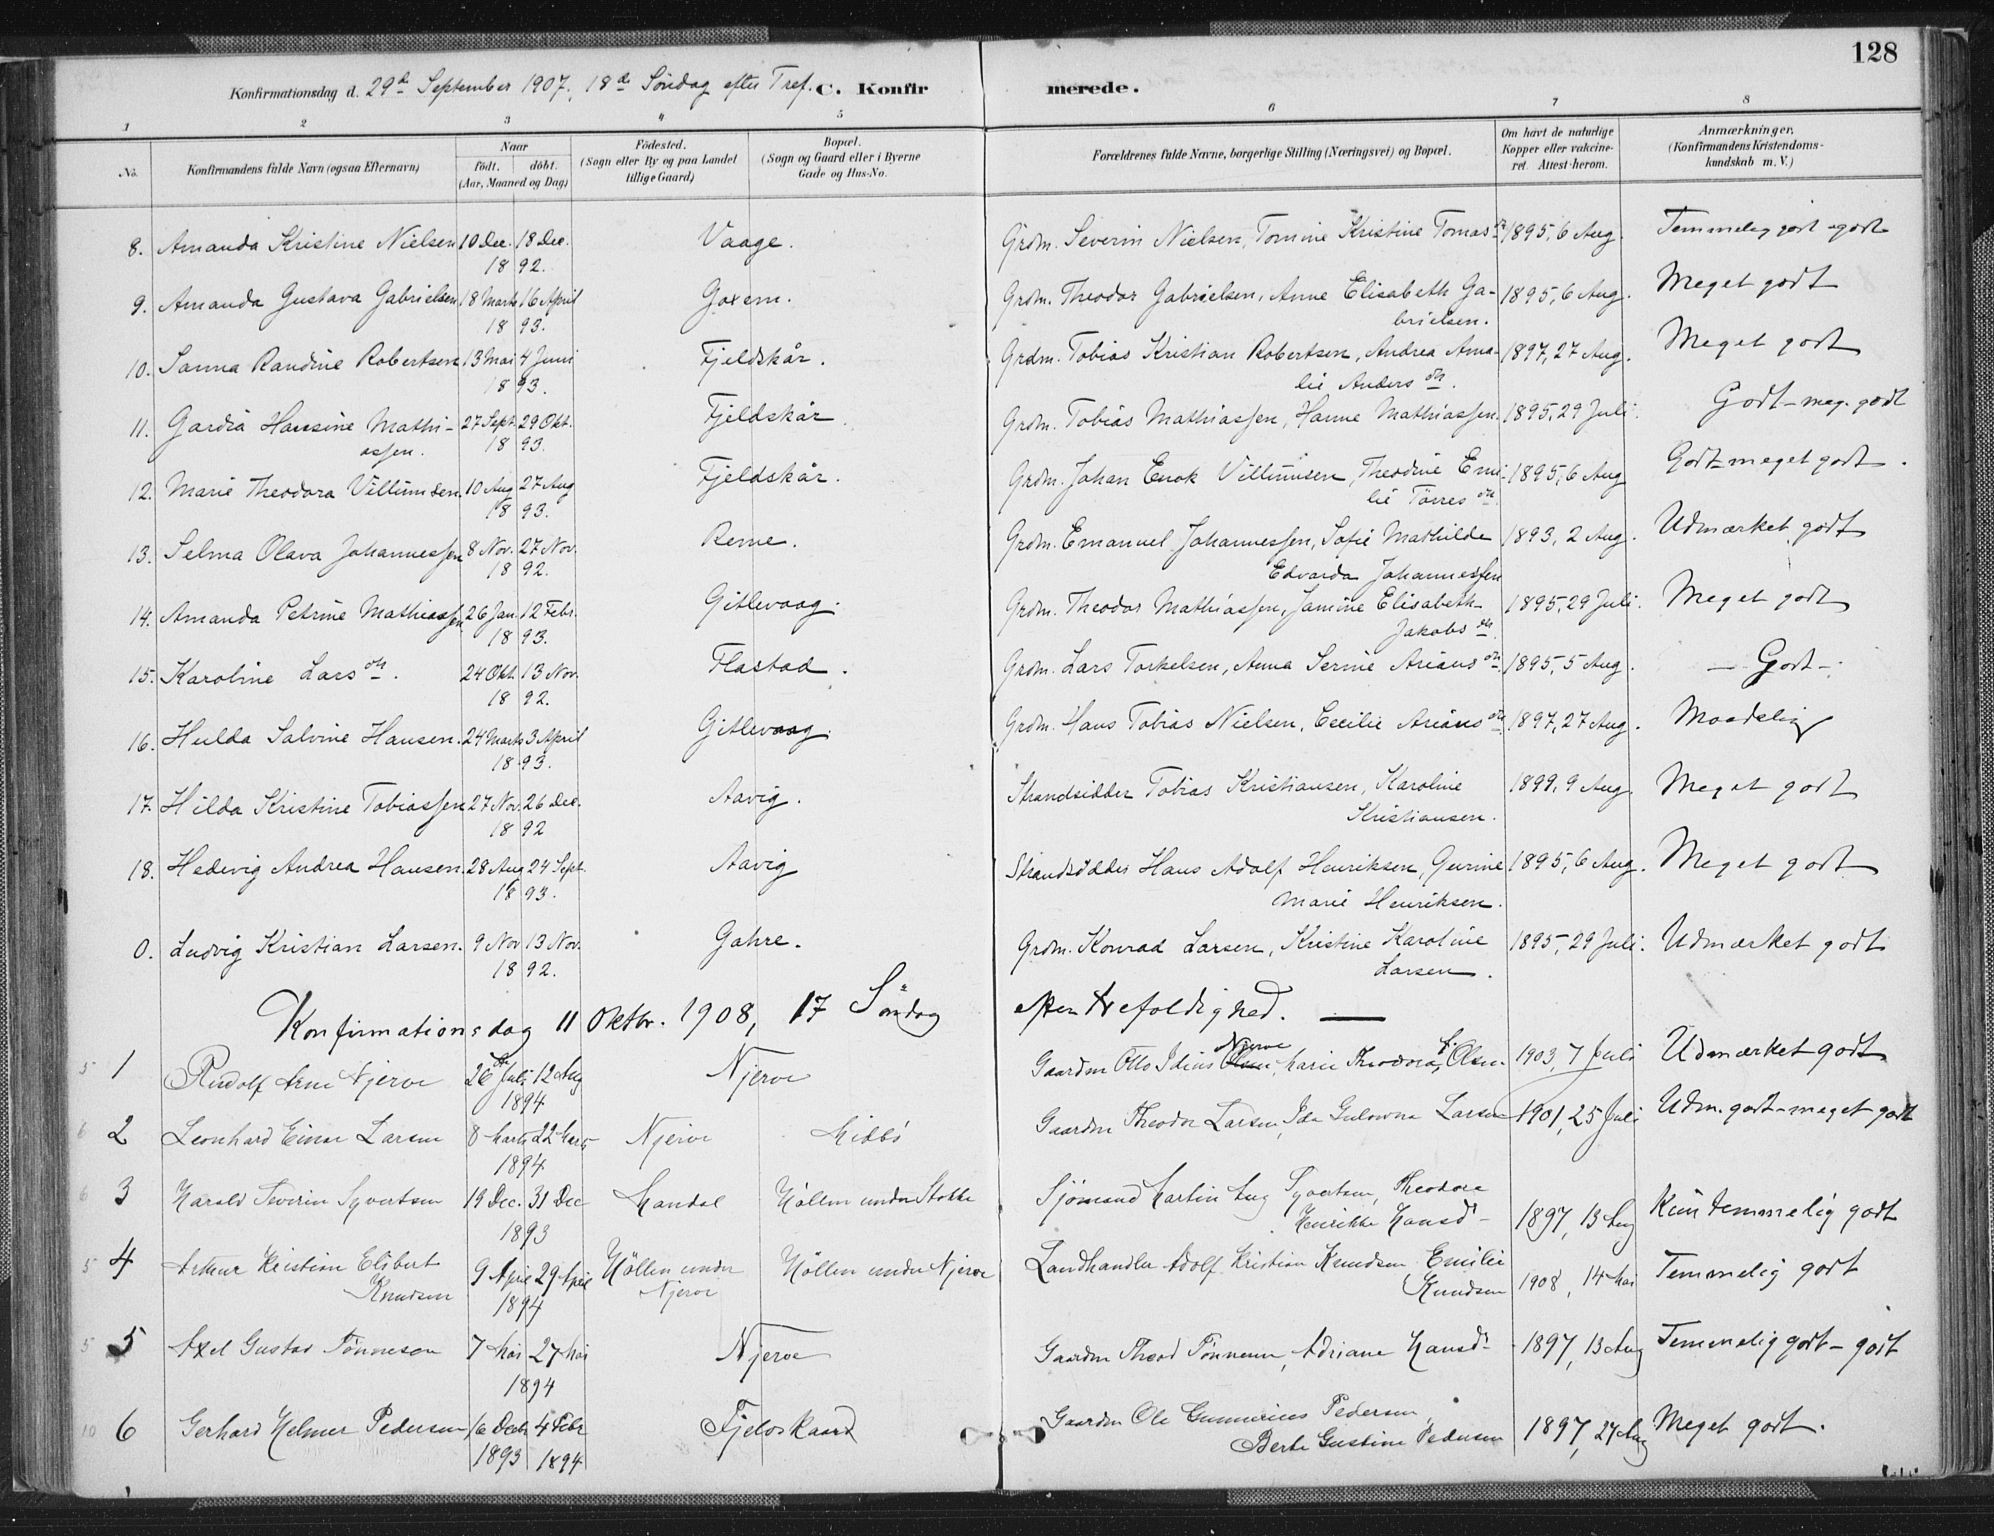 128
Konfirmationsdag d. 29d September 1907, 18d Søndag efter Tref. C. Konfirmerede.
1 2 3 4 5 6 7 8
No. Konfirmandens fulde Navn (ogsaa Efternavn) Naar født. døbt. (Aar, Maaned og Dag) Födested. (Sogn eller By og paa Landet tillige Gaard) Bopæl. (Sogn og Gaard eller i Byerne Gade og Hus-No. Forældrenes fulde Navne, borgerlige Stilling (Næringsvei) og Bopæl. Om havt de naturlige Kopper eller vakcineret. Attest herom. Anmærkninger. (Konfirmandens Kristendomskundskab m. V.)
8. Amanda Kristine Nielsen 10 Dec. 18 Dec. Vaage. Grdm. Severin Nielsen, Tomine Kristine Tomasdtr 1895, 6 Aug. Temmelig godt - godt
1892.
9. Amanda Gustava Gabrielsen 18 Marts 16 April Goxem. Grdm. Theodor Gabrielsen, Anne Elisabeth Ga- 1895, 6 Aug. Meget godt
1893. brielsen.
10. Sanna Randine Robertsen 13 Mai 4 Juni Fjeldskår. Grdm. Tobias Kristian Robertsen, Andrea Ama- 1897, 27 Aug. Meget godt
1893. lie Andersdtr.
11. Gardia Hansine Mathi- 27 Sept. 29 Okt. Fjeldskår Grdm. Tobias Mathiassen, Hanne Mathiassen. 1895, 29 Juli. Godt - meg. godt
assen. 1893.
12. Marie Theodora Villumsen. 10 Aug 27 Aug Fjeldskår. Grdm. Johan Enok Villumsen, Theodine Emi- 1895, 6 Aug Godt - meget godt.
1893. lie Tørresdtr.
13. Selma Olava Johannessen 8 Nov. 27 Nov. Reme. Grdm. Emanuel Johannessen, Sofie Mathilde 1893, 2 Aug. Udmærket godt
1892. Edvarda Johannessen
14. Amanda Petrine Mathiassen 26 Jan. 12 Febr. Gitlevaag. Grdm. Theodor Mathiassen, Jamine Elisabeth 1895, 29 Juli. Meget godt
1893. Jakobsdtr.
15. Karoline Larsdtr. 24 Okt. 13 Nov. Flastad. Grdm. Lars Torkelsen, Anna Serine Ariansdtr. 1895, 5 Aug. - Godt -
1892.
16. Hulda Salvine Hansen. 24 Marts 3 April Gitlevaag. Grdm. Hans Tobias Nielsen, Cecilie Ariansdtr. 1897, 27 Aug. Maadelig
1893.
17. Hilda Kristine Tobiassen 27 Nov. 26 Dec. Aavig. Strandsidder Tobias Kristiansen, Karoline 1899, 9 Aug. Meget godt
1892 Kristiansen.
18. Hedevig Andrea Hansen. 28 Aug 24 Sept. Aavig Strandsidder Hans Adolf Henriksen, Gurine 1895, 6 Aug. Meget godt
1893. Marie Henriksen.
0. Ludvig Kristian Larsen. 9 Nov 13 Nov. Gahre. Grdm. Konrad Larsen, Kristine Karoline 1895, 29 Juli. Udmærket godt
1892. Larsen.
Konfirmationsdag 11 Oktbr. 1908, 17 Søndag efter trefoldighed.
5 1 Rudolf Arne Njerve 26 Juli 12 Aug Njerve Gaardm Otto Idius Olsen Njerve, Marie Theodora Olsen 1903, 7 Juli Udmærket godt
1894
6 2 Leonhard Einar Larsen 8 Marts 22 Marts Njerve Midbö Gaardm Theodor Larsen, Ida Gulowna Larsen 1901, 25 Juli Udm. godt - meget godt
1894
6 3 Harald Severin Syvertsen 19 Dec. 31 Dec Mandal Höllen under Stokke Sjömand Martin Aug Syvertsen, Theodora
1893 Henrikke Hansd- 1897, 13 Aug Kun temmelig godt
5 4 Artur Kristian Elibert 9 April 29 April Höllen under Höllen under Njerve Landhandler Adolf Kristian Knudsen Emilie
Knudsen 1894 Njerve Knudsen 1908, 14 Mai Temmelig godt
5 5 Axel Gustav Tönnesen 7 Mai 27 Mai Njerve Gaardm Theod Tönnesen, Adriane Hansd- 1897, 13 Aug Temmelig godt - godt
1894
10 6 Gerhard Helmer Pedersen 16 Decb 4 Febr Fjeldskaard Gaardm Ole Gunnerius Pedersen,
1893 1894 Berte Gustine Pedersen 1897, 27 Aug Meget godt.